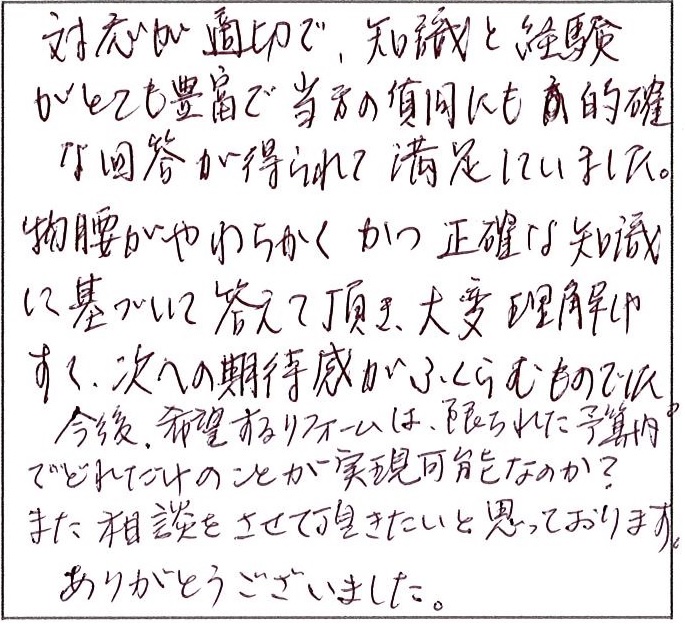 対応が適切で、知識と経験
がとても豊富で当方の質問にも的確
な回答が得られて満足していました。
物腰がやわらかくかつ正確な知識
に基づいて答えて頂き、大変理解しや
すく、次への期待感がふくらむものでした。
今後、希望するリフォームは、限られた予算内
でどれだけのことが実現可能なのか?
また相談をさせて頂きたいと思っております。
ありがとうございました。